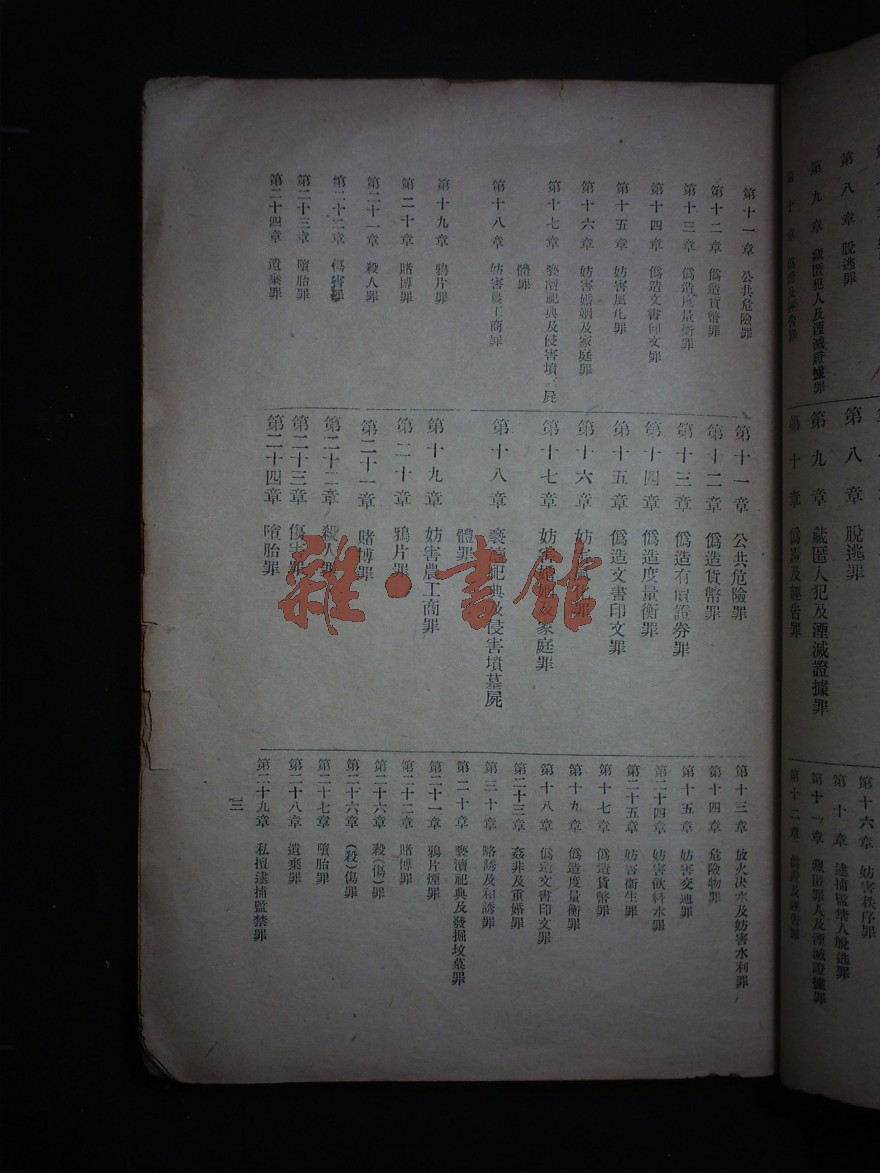 第八章 脫逃罪
第九章 藏匿犯人及湮滅證據罪
第十章 偽證及誣告罪
第八章 脫逃罪
第九章 藏匿人犯及湮滅證據罪
第十章 偽證及誣告罪
第十六章 妨害秩序罪
第十章 逮捕監禁人脫逃罪
第十一章 藏匿罪人及湮滅證據罪
第十二章 偽證及誣告罪
第十一章 公共危險罪
第十二章 偽造貨幣罪
第十三章 偽造度量衡罪
第十四章 偽造文書印文罪
第十五章 妨害風化罪
第十六章 妨害婚姻及家庭罪
第十七章 褻瀆祀典及侵害墳墓屍
體罪
第十八章 妨害農工商罪
第十九章 鴉片罪
第二十章 賭博罪
第二十一章 殺人罪
第二十二章 傷害罪
第二十三章 墮胎罪
第二十四章 遺棄罪
第十一章 公共危險罪
第十二章 偽造貨幣罪
第十三章 偽造有價證券罪
第十四章 偽造度量衡罪
第十五章 偽造文書印文罪
第十六章 妨害風化罪
第十七章 妨害婚姻及家庭罪
第十八章 褻瀆祀典及侵害墳墓屍
體罪
第十九章 妨害農工商罪
第二十章 鴉片罪
第二十一章 賭博罪
第二十二章 殺人罪
第二十三章 傷害罪
第二十四章 墮胎罪
第十三章 放火决水及妨害水利罪
第十四章 危險物罪
第十五章 妨害交通罪
第二十四章 妨害飲料水罪
第二十五章 妨害衞生罪
第十七章 偽造貨幣罪
第十九章 偽造度量衡罪
第十八章 偽造文書印文罪
第二十三章 姦非及重婚罪
第三十章 略誘及和誘罪
第二十章 褻瀆祀典及發掘坟墓罪
第二十一章 鴉片煙罪
第二十二章 賭博罪
第二十六章 殺(傷)罪
第二十六章 (殺)傷罪
第二十七章 墮胎罪
第二十八章 遺棄罪
第二十九章 私擅逮捕監禁罪
三
雜·書館